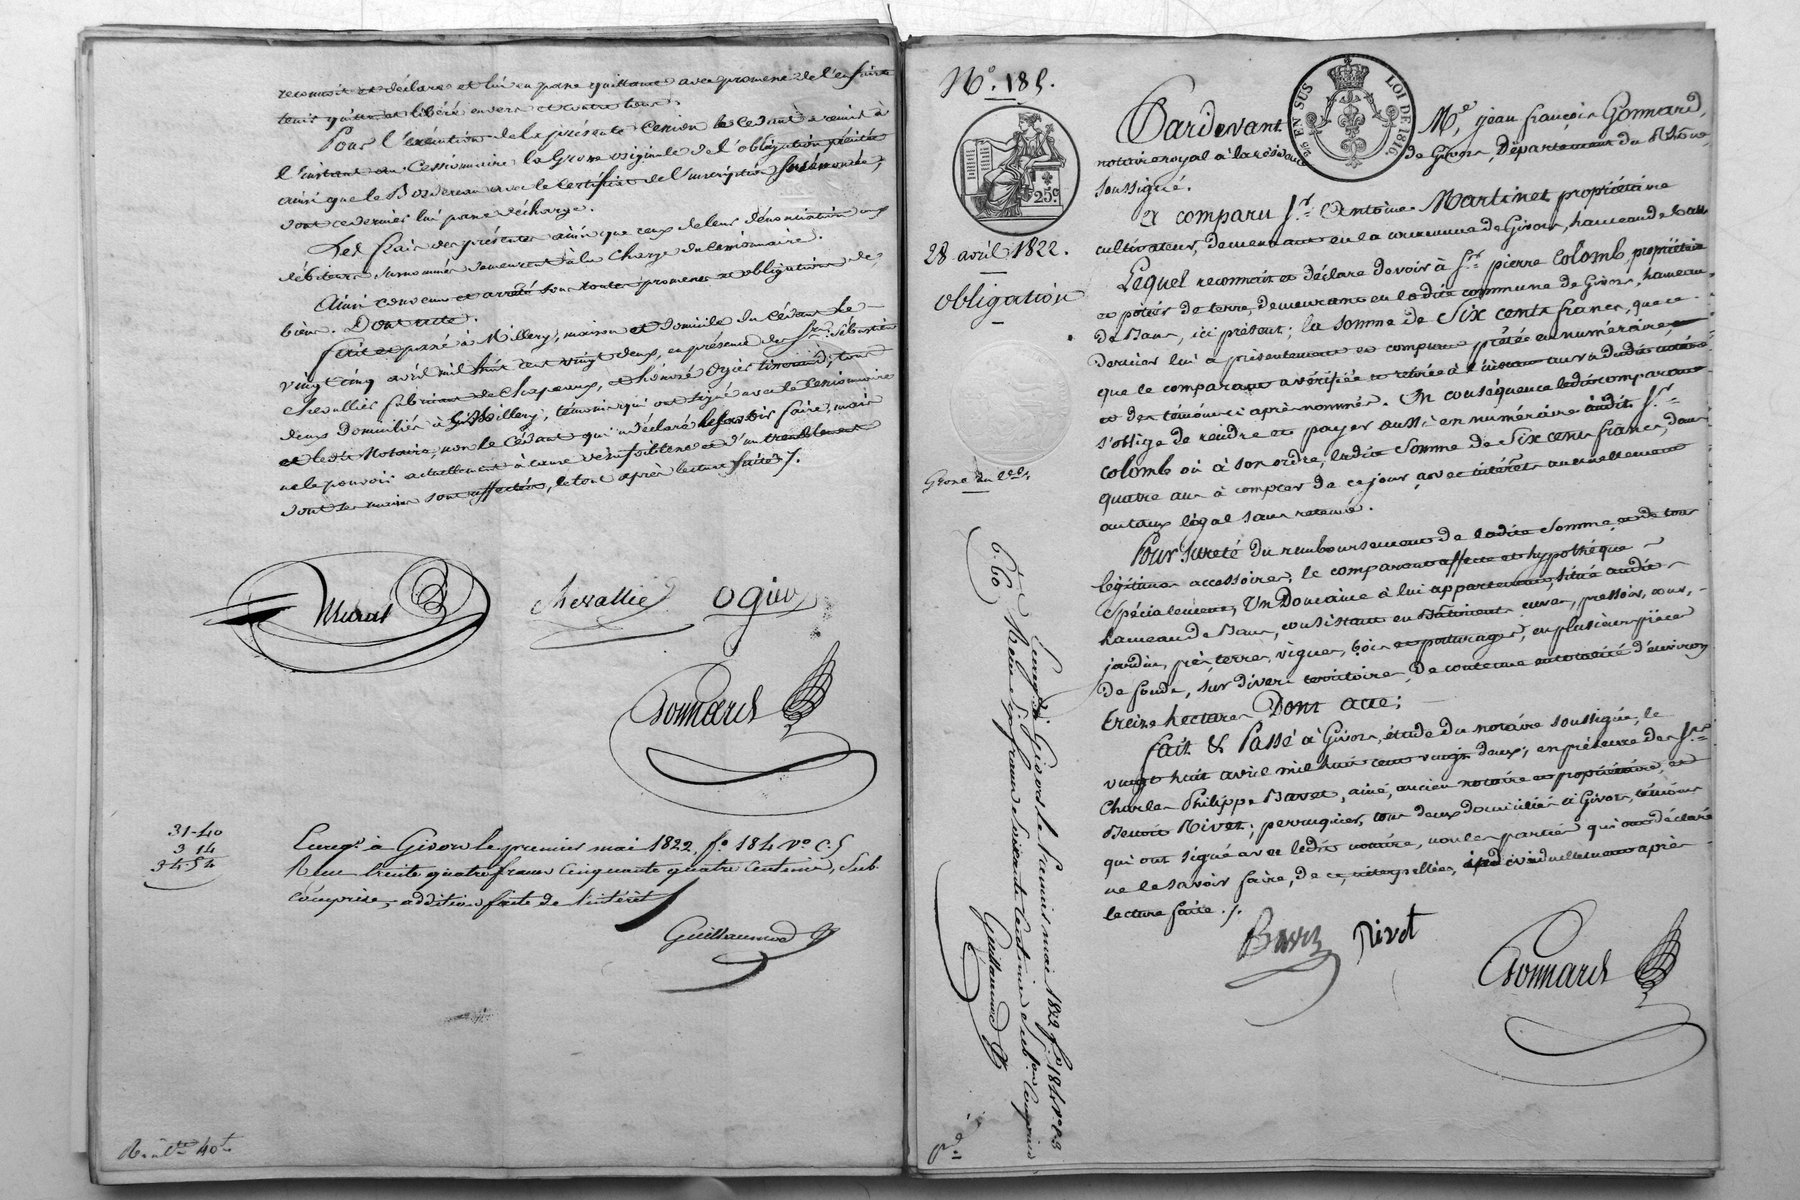 reconnoit et déclare et lui en passe quittance avec promesse de l'en faire
tenir quitte et libéré envers et contre tous.
Pour l'exécution de la présente Cession le cédant a remis à
l'instant au Cessionnaire la Grosse originale de l'obligation précitée
ainsi que le Bordereau avec le certificat de l'inscription susénoncée,
dont ce dernier lui passe décharge.
Les frais des présentes ainsi que ceux de leur dénonciation aux
débiteurs surnommés demeurent à la charge du cessionnaire.
Ainsi convenu et arrêté sous toutes promesses et obligations de
biens. Dont acte.
fait et passé à Millery, maison et domicile du cédant le
vingt cinq avril mil huit cent vingt deux, en présence des Srs. Sébastien
Chevallier fabricant de chapeaux, et honoré Ogier, tous
deux domiciliés à Millery, témoins qui ont signé avec le Cessionnaire
et ledit Notaire, non le Cédant qui a déclaré le savoir faire, mais
ne le pouvoir actuellement à cause de sa foiblesse et d'un tremblement
dont ses mains sont affectées, le tout après lecture faite ./.
Murat Chevallié Ogier
Gonnard
31-40
3 14
34.54
Enregé. à Givors le premier mai 1822, fo. 184 Vo. C. 5
Reçu trente quatre francs cinquante quatre centimes, Sub.
comprise, addition faite de l'intérêt
Guillaumod
No. 185.
25c.
28 avril 1822.
Obligation
Grosse du 2
25 EN SUS
LOI DE 1816
Pardevant Me. jean françois Gonnard,
notaire royal à la résidence de Givors, Département du Rhône
soussigné.
A comparu Sr. Antoine Martinet propriétaire
cultivateur, demeurant en la commune de Givors, hameau de Bans
Lequel reconnoit et déclare devoir à Sr. pierre Colomb, propriétaire
et potier de terre, demeurant en ladite commune de Givors, hameau
de Bans, ici présent; la somme de Six cents francs, que ce
dernier lui a présentement et comptant prêtée en numéraire,
que le comparant a vérifiée et retirée à l'instant au vu dudit notaire
et des témoins ci après nommés. En conséquence ledit comparant
s'oblige de rendre et payer aussi en numéraire audit Sr.
Colomb ou à son ordre, ladite somme de Six cents francs, dans
quatre ans à compter de ce jour, avec intérêts annuellement
au taux légal sans retenue.
Pour sureté du remboursement de ladite Somme et de tous
légitimes accessoires, le comparant affecte et hypothèque
spécialement, Un Domaine à lui appartenant, situé audit
hameau de Bans, consistant en Bâtiments cuves, pressoir, cour,
jardin, près, terres, vignes, bois et paturages, en plusieurs pièces
de fonds, sur divers territoires, de contenue en totalité d'environ
treize hectares Dont acte;
fait & Passé à Givors, étude du notaire soussigné, le
vingt huit avril mil huit cent vingt deux, en présence des Srs.
Charles Philippe Bavet, ainé, ancien notaire et propriétaire, et
Benoit Rivet, perruquier, tous deux domiciliés à Givors, témoins
qui ont signé avec ledit notaire, non les parties qui ont déclaré
ne le savoir faire, de ce interpellées, individuellement après
lecture faite ./.
Rivet
Gonnard
6.60
Enregé. à Givors le Premier mai 1822 fo. 184 Vo. C. 3
Reçu Six francs Soixante centimes Subon. Comprise
Guillaumod